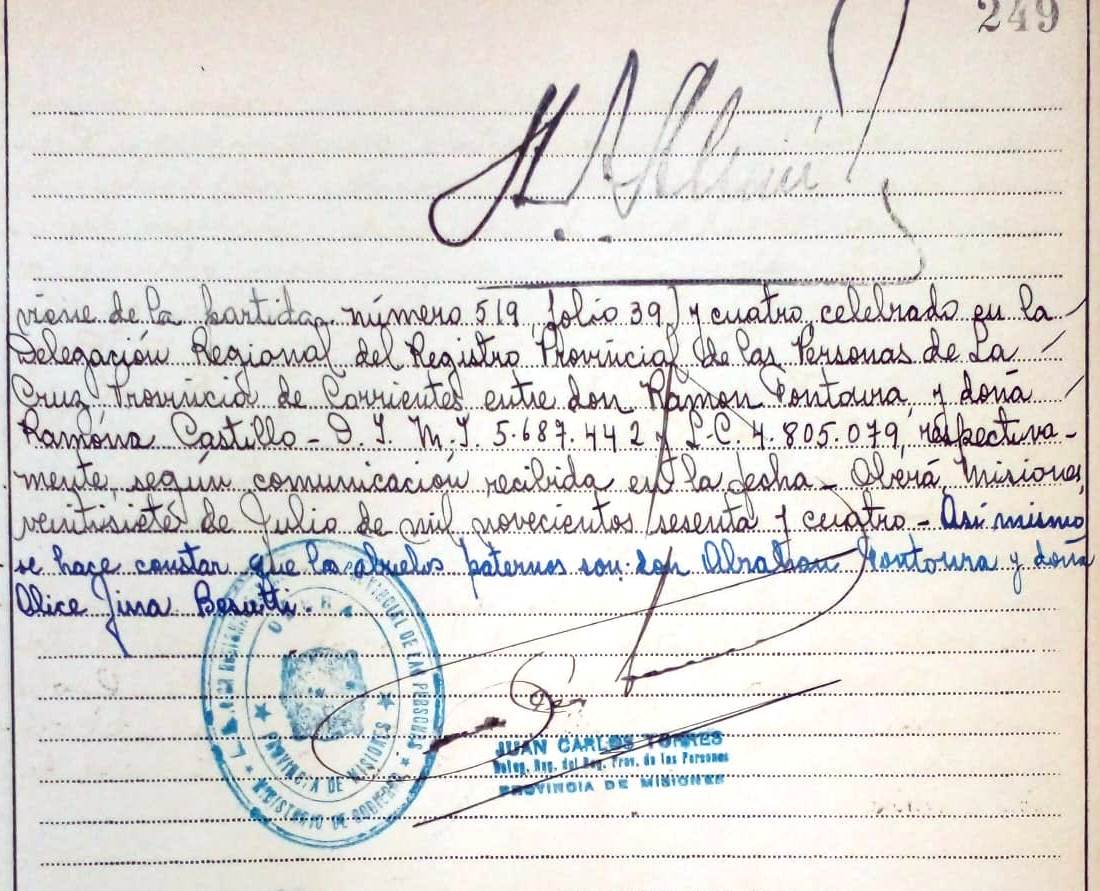 249
viene de la partida número 519 folio 39) y cuatro, celebrado en la
Delegación Regional del Registro Provincial de las Personas de La
Cruz Provincia de Corrientes entre don Ramon Fontoura, y doña
Ramóna Castillo - D. I. M. I. 5.687.442 y L.C. 4.805.079, respectiva-
mente, según comunicación recibida en la fecha - Oberá, Misiones,
veintisiete de Julio de mil novecientos sesenta y cuatro - Asi mismo
se hace constar que los abuelos paternos son: don Abraham Fontoura y doña
Alice Jina Besutti.
PROVINCIAL DE LAS PERSONAS
PROVINCIA DE MISIONES
MINISTERIO DE GOBIERNO
JUAN CARLOS TORRES
Deleg. Reg. del Reg. Prov. de las Personas
PROVINCIA DE MISIONES